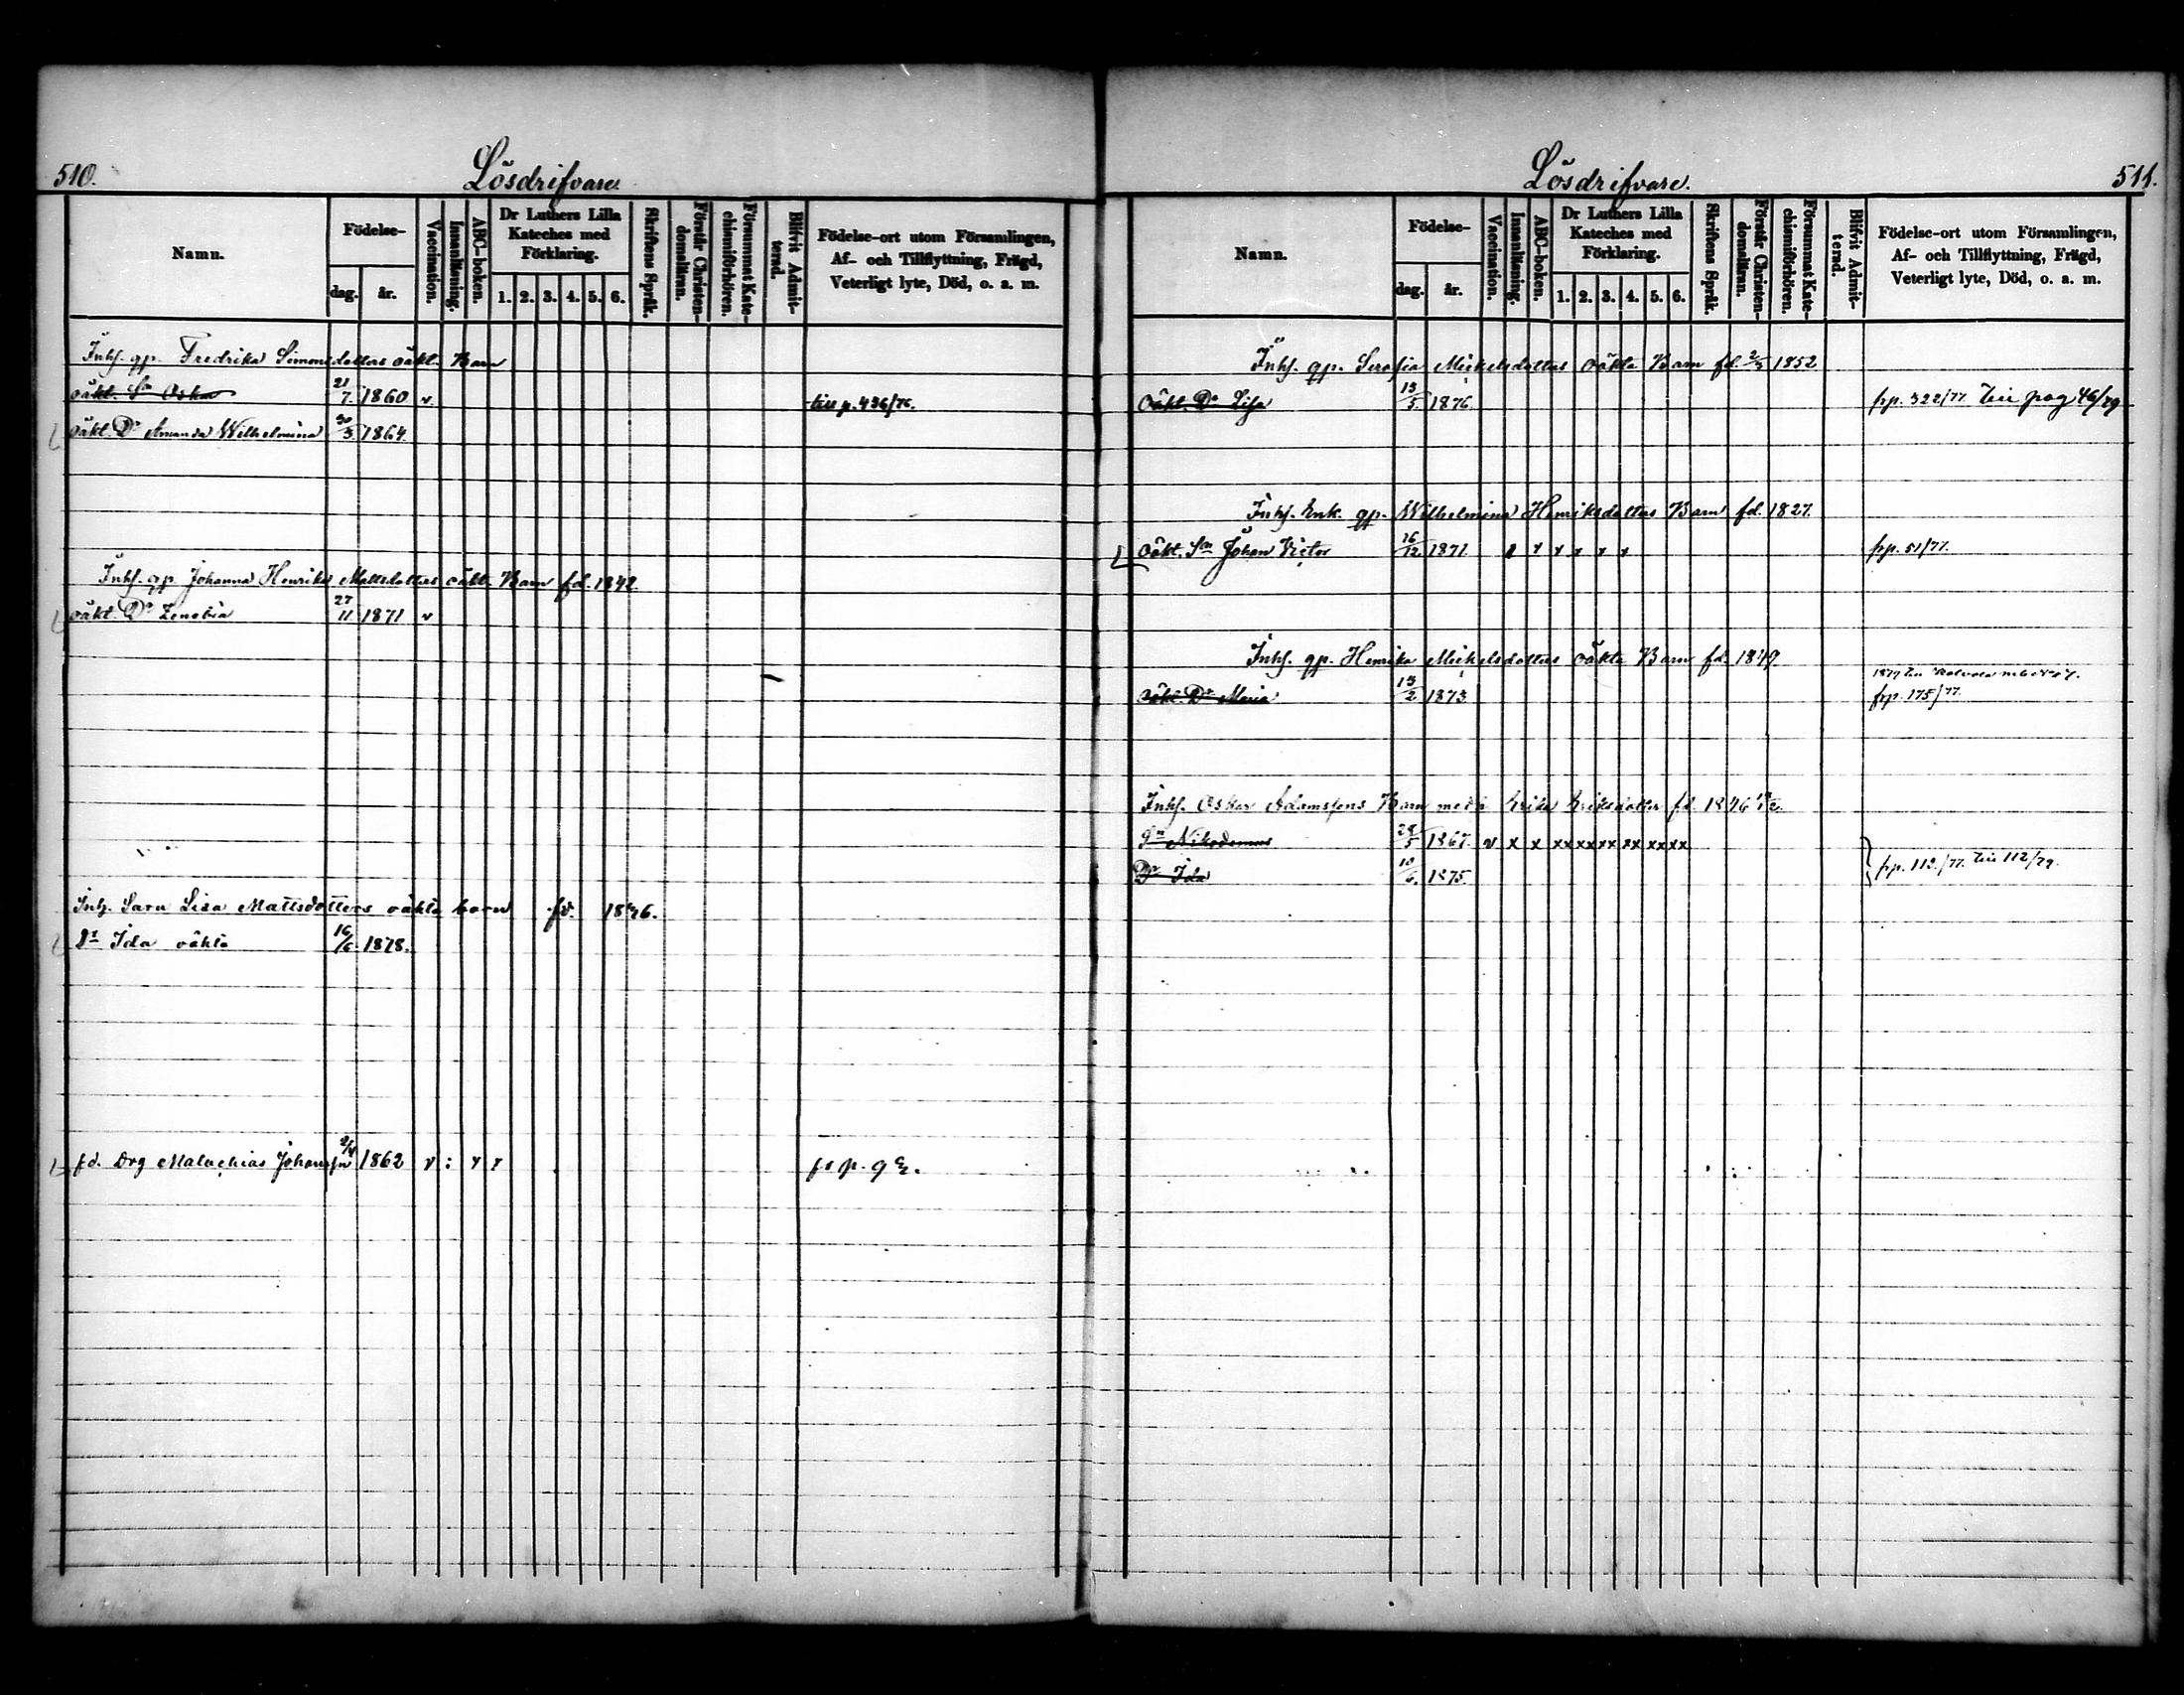 510.
Lösdrifvare.
Namn.
Födelse-
dag. år.
Vaccination.
Innanläsning.
ABC-boken.
Dr Luthers Lilla Kateches med Förklaring.
1. 2. 3. 4. 5. 6.
Skriftens Språk.
Förstår Christendomsläran.
Försummat Katechismiförhören.
Blifvit Admitterad.
Födelse-ort utom Församlingen,
Af- och Tillflyttning, Frägd,
Veterligt lyte, Död, o. a. m.
Inhs. qp. Fredrika Simonsdotters oäkt. Barn
oäkt. Sn Oskar 21/7. 1860 v. till p. 436/76.
oäkt. Dr Amanda Wilhelmina 30/3. 1864.
Inhs. qp. Johanna Henrika Mattsdotters oäkta Barn fd. 1842
oäkt. Dr Zenobia 27/11. 1871 v
Inhs. Sara Lisa Mattsdotters oäkta barn fd. 1846.
Dr Ida oäkta 16/6. 1878.
fd. Drg Malachias Johansson 2/4 1862 v : x x
511.
Lösdrifvare.
Namn.
Födelse-
dag. år.
Vaccination.
Innanläsning.
ABC-boken.
Dr Luthers Lilla Kateches med Förklaring.
1. 2. 3. 4. 5. 6.
Skriftens Språk.
Förstår Christendomsläran.
Försummat Katechismiförhören.
Blifvit Admitterad.
Födelse-ort utom Församlingen,
Af- och Tillflyttning, Frägd,
Veterligt lyte, Död, o. a. m.
Inhs. qp. Serafia Mickelsdotters oäkta Barn fd. 2/5 1852
Oäkt. Dr Lisa 13/5. 1876. frp. 322/77. till pag 46/79
Inhs. Enk. qp. Wilhelmina Henriksdotters Barn fd. 1827.
Oäkt. Sn Johan Victor 16/12 1871 x x x x x frp. 51/77.
Inhs. qp. Henrika Mickelsdotters oäkta Barn fd. 1849
oäkt. Dr Maria 13/2 1873 frp. 175/77.
Inhs. Oskar Adamssons Barn med Erika Eriksdotter fd. 1846
Sn Nikodemus 28/5 1867. v x x xx xx xx xx xx xx
Dr Ida 10/6. 1875. frp. 112./77. till 112/79.